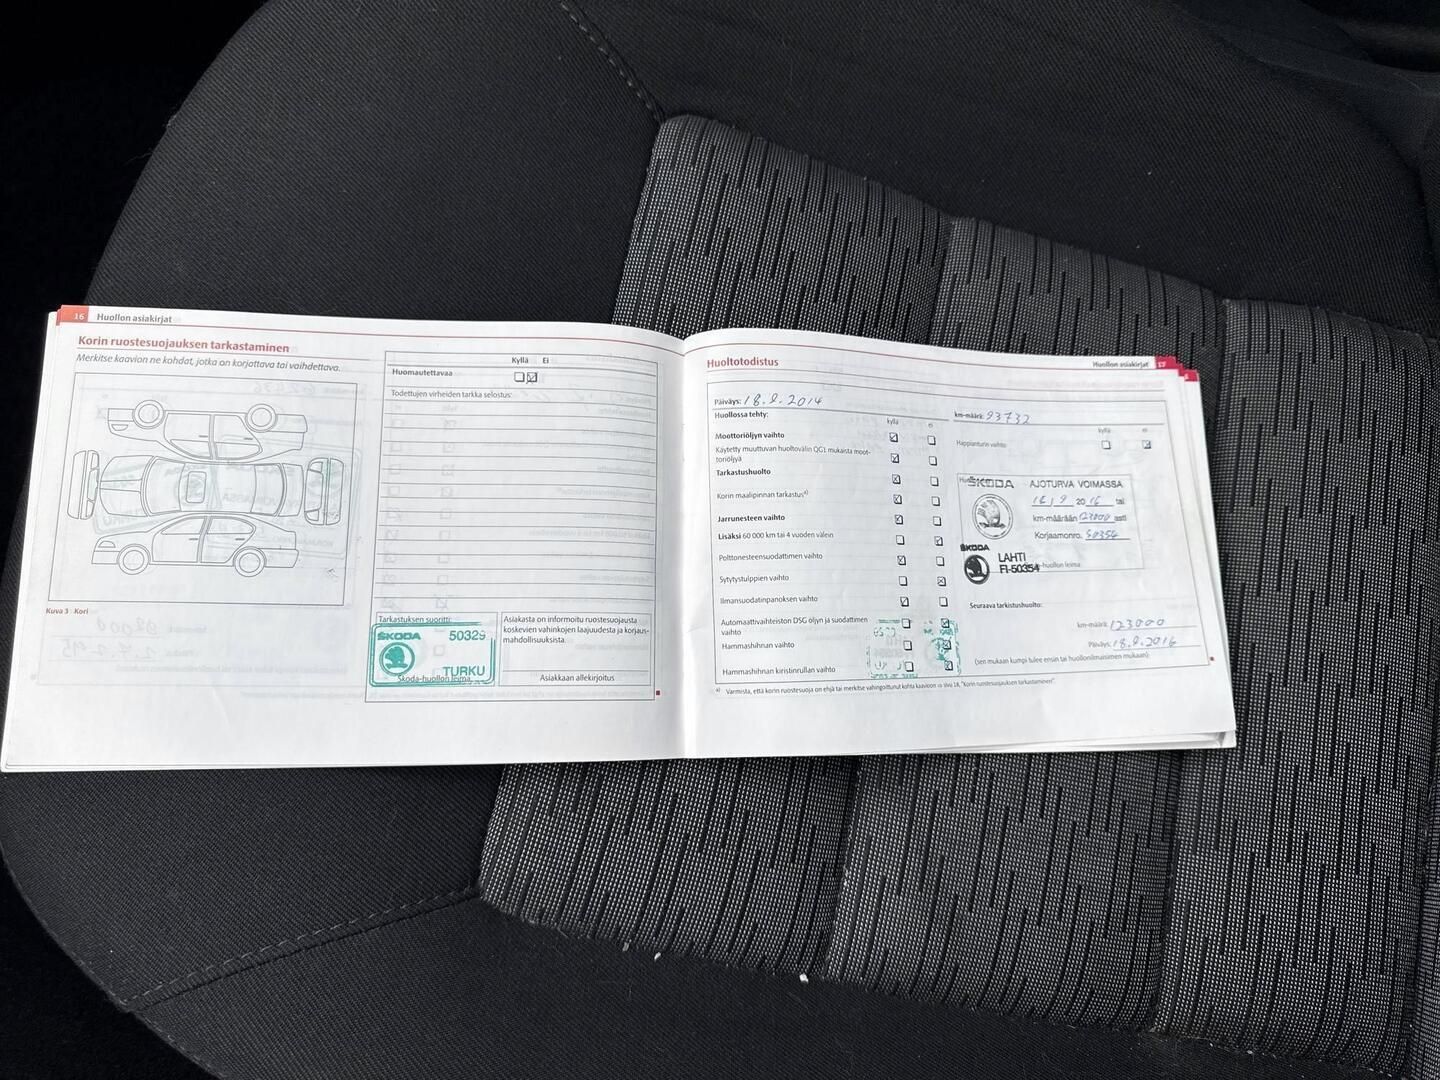 16 Huollon asiakirjat
Korin ruostesuojauksen tarkastaminen
Merkitse kaavion ne kohdat, jotka on korjattava tai vaihdettava.
Kuva 3 Kori
Kyllä Ei
Huomautettavaa
Todettujen virheiden tarkka selostus:
Tarkastuksen suoritti:
ŠKODA 50329
TURKU
Skoda-huollon leima
Asiakasta on informoitu ruostesuojausta
koskevien vahinkojen laajuudesta ja korjaus-
mahdollisuuksista.
Asiakkaan allekirjoitus
Huollon asiakirjat 17
Huoltotodistus
Päiväys: 18.9.2014
Huollossa tehty:
kyllä ei
Moottoriöljyn vaihto
Käytetty muuttuvan huoltovälin QG1 mukaista moot-
toriöljyä
Tarkastushuolto
Korin maalipinnan tarkastus a)
Jarrunesteen vaihto
Lisäksi 60 000 km tai 4 vuoden välein
Polttonesteensuodattimen vaihto
Sytytystulppien vaihto
Ilmansuodatinpanoksen vaihto
Automaattivaihteiston DSG öljyn ja suodattimen
vaihto
Hammashihnan vaihto
Hammashihnan kiristinrullan vaihto
km-määrä: 93732
kyllä ei
ŠKODA AJOTURVA VOIMASSA
18.9 2016 tai
km-määrään 123000 asti
Korjaamonro. 50354
ŠKODA
LAHTI
FI-50354
-huollon leima
Seuraava tarkistushuolto:
km-määrä: 123000
Päiväys: 18.9.2016
(sen mukaan kumpi tulee ensin tai huollonilmaisimen mukaan)
a) Varmista, että korin ruostesuoja on ehjä tai merkitse vahingoittunut kohta kaavioon ⇒ sivu 18, "Korin ruostesuojauksen tarkastaminen".